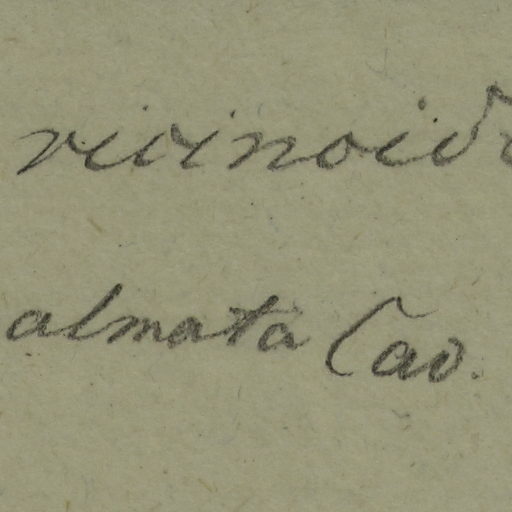 ricinoid
almata Cav.